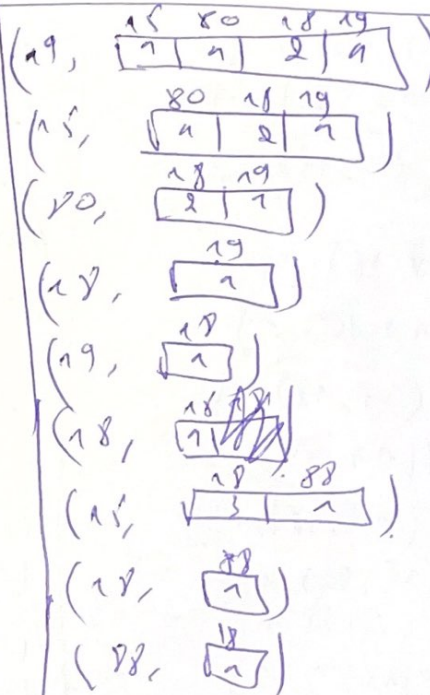 15 80 18 19
(19, 1 1 2 1)
80 18 19
(15, 1 2 1)
18 19
(80, 2 1)
19
(18, 1)
18
(19, 1)
(18, 1
18 88
(15, 3 1)
88
(18, 1)
18
(88, 1)